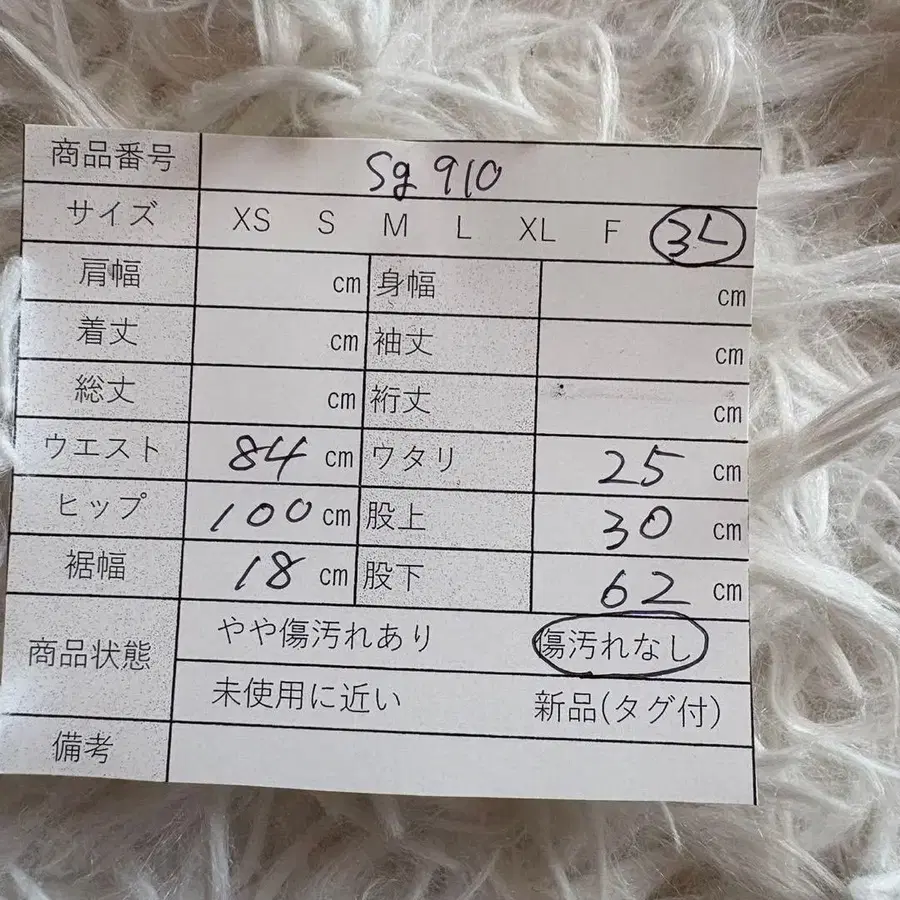 商品番号 Sg 910
サイズ XS S M L XL F 3L
肩幅 cm 身幅 cm
着丈 cm 袖丈 cm
総丈 cm 裄丈 cm
ウエスト 84 cm ワタリ 25 cm
ヒップ 100 cm 股上 30 cm
裾幅 18 cm 股下 62 cm
商品状態 やや傷汚れあり 傷汚れなし
未使用に近い 新品(タグ付)
備考